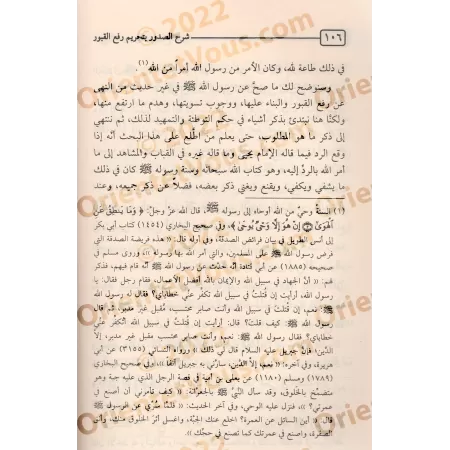 ١٠٦ شرح الصدور بتحريم رفع القبور
في ذلك طاعة لله، وكان الأمر من رسول الله أمراً من الله (١).
وسنوضح لك ما صح عن رسول الله ﷺ في غير حديث من النهي
عن رفع القبور والبناء عليها، ووجوب تسويتها، وهدم ما ارتفع منها،
ولكنا هنا نبتدئ بذكر أشياء في حكم التوطئة والتمهيد لذلك، ثم ننتهي
إلى ذكر ما هو المطلوب، حتى يعلم من اطلع على هذا البحث أنه إذا
وقع الرد فيما قاله الإمام يحيى وما قاله غيره في القباب والمشاهد إلى ما
أمر الله بالرد إليه، وهو كتاب الله سبحانه وسنة رسوله ﷺ كان في ذلك
ما يشفي ويكفي، ويقنع ويغني ذكر بعضه، فضلاً عن ذكر جميعه، وعند
(١) السنة وحي من الله أوحاه إلى رسوله ﷺ، قال الله عز وجل: ﴿ وَمَا يَنطِقُ عَنِ
ٱلْهَوَىٰٓ ۝ إِنْ هُوَ إِلَّا وَحْىٌ يُوحَىٰ ﴾، وفي صحيح البخاري (١٤٥٤) كتاب أبي بكر
إلى أنس الطويل في بيان فرائض الصدقة، وفي أوله قال: «هذه فريضة الصدقة التي
فرض رسول الله ﷺ على المسلمين، والتي أمر الله بها رسوله»، وروى مسلم في
صحيحه (١٨٨٥) عن أبي قتادة أنه حدث عن رسول الله ﷺ أنه قام فيهم، فذكر
لهم: «أن الجهاد في سبيل الله والإيمان بالله أفضل الأعمال، فقام رجل فقال: يا
رسول الله، أرأيت إن قُتلتُ في سبيل الله تكفر عني خطاياي؟ فقال له رسول الله
ﷺ: نعم، إن قُتلتَ في سبيل الله وأنت صابر محتسب، مقبل غير مدبر، ثم قال
رسول الله ﷺ: كيف قلت؟ قال: أرأيت إن قُتلتُ في سبيل الله أتكفر عني
خطاياي؟ فقال رسول الله ﷺ: نعم، وأنت صابر محتسب مقبل غير مدبر، إلا
الدَّين، فإن جبريل عليه السلام قال لي ذلك» ورواه النسائي (٣١٥٥) عن أبي
هريرة، وفي آخره: «نعم، إلا الدَّين، سارني به جبريل آنفاً»، وفي صحيح البخاري
(١٧٨٩) ومسلم (١١٨٠) عن يعلى بن أمية في قصة الرجل الذي عليه جبة وهو
متضمخ بالخلوق، وقد سأل النبي ﷺ بالجعرانة: «كيف تأمرني أن أصنع في
عمرتي؟»، فنزل عليه الوحي، وفي آخر الحديث: «فلما سُرّي عن الرسول ﷺ
قال: أين السائل عن العمرة؟ اخلع عنك الجبة، واغسل أثر الخلوق منك، وأنق
الصفرة، واصنع في عمرتك كما تصنع في حجك».
OrientVous.com © 2022